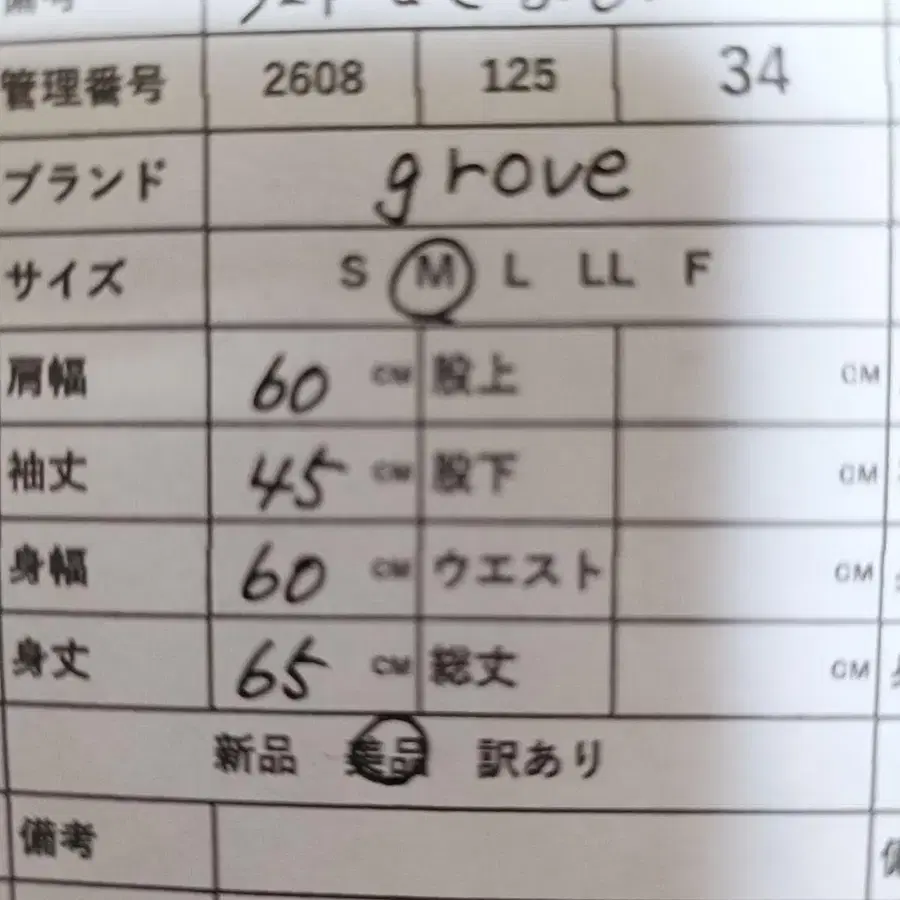 管理番号 2608 125 34
ブランド grove
サイズ S M L LL F
肩幅 60 CM 股上 CM
袖丈 45 CM 股下 CM
身幅 60 CM ウエスト CM
身丈 65 CM 総丈 CM
新品 美品 訳あり
備考